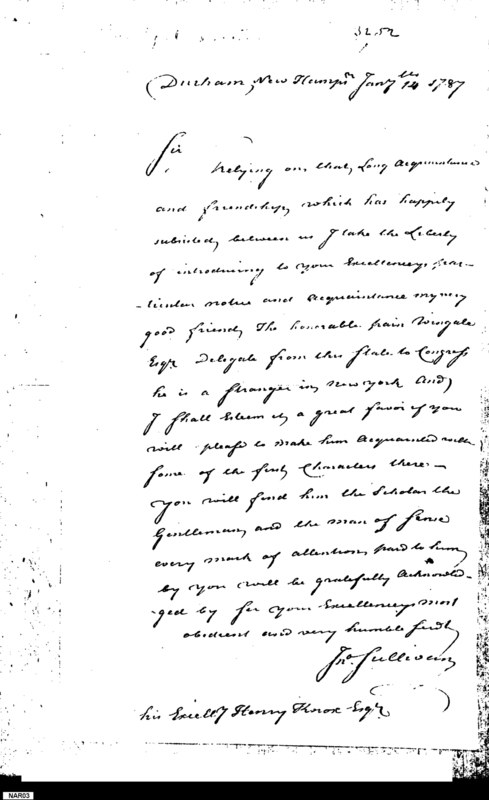 3252
Durham, New Hampr Jany 14th 1787
Sir
Relying on that Long Acquaintance
and friendship which has happily
subsisted between us I take the Liberty
of introducing to your Excellencys par-
-ticular notice and acquaintance my very
good friend The honorable pain Wingate
Esqr Delegate from this State to Congress
he is a Stranger in newyork and
I shall Esteem it a great favor if you
will please to make him acquainted with
some of the first Characters there—
you will find him the Scholar the
Gentleman and the man of Sense
every mark of attention paid to him
by you will be gratefully acknowled-
-ged by Sir your Excellencys most
obedient and very humble servt
Jno Sullivan
his Excelly Henry Knox Esqr
NAR03